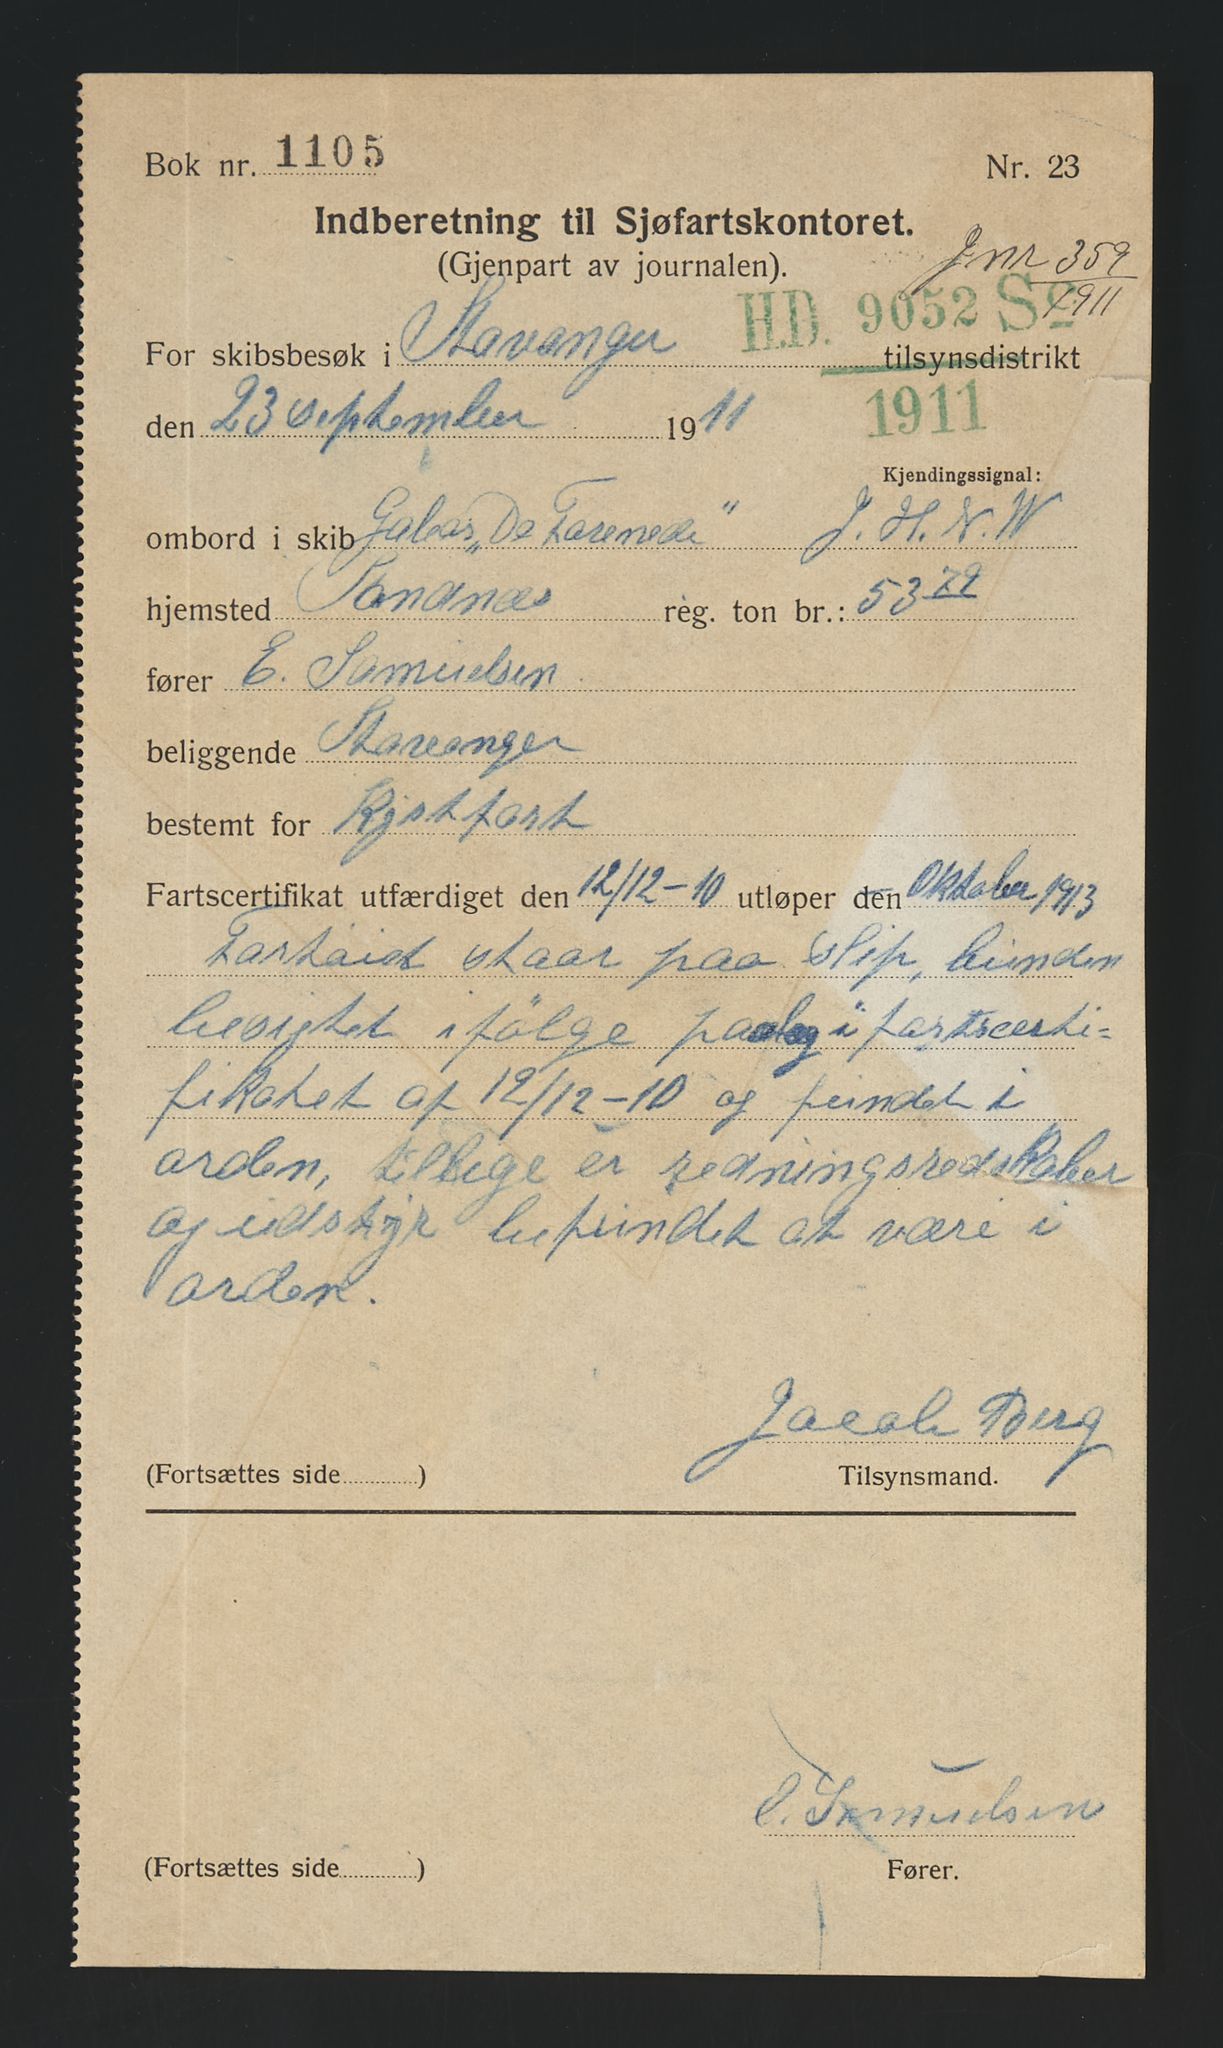 Bok nr. 1105 Nr. 23
Indberetning til Sjøfartskontoret.
(Gjenpart av journalen).
J nr 359
1911
H.D. 9052 Sø
1911
For skibsbesøk i Stavanger tilsynsdistrikt
den 23 september 1911
Kjendingssignal:
ombord i skib Galeas „De Forenede" J. H. N. W
hjemsted Sandnes reg. ton br.: 53 79
fører E. Samuelsen
beliggende Stavanger
bestemt for Kystfart
Fartscertifikat utfærdiget den 12/12-10 utløper den Oktober 1913
Fartøiet staar paa slip, bunden
besigtet i følge paalæg i fartscerti-
fikatet af 12/12-10 og fundet i
orden, tillige er redningsredskaber
og udstyr befundet at være i
orden.
Jacob Berg
(Fortsættes side ) Tilsynsmand.
E. Samuelsen
(Fortsættes side ) Fører.